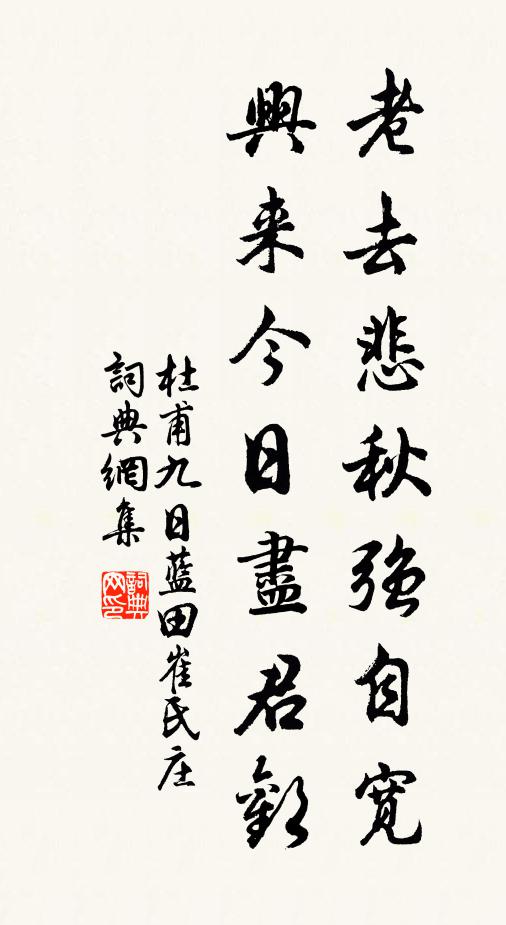 老去悲秋強自寬
興来今日盡君歡
杜甫九日藍田崔氏庄
詞典網集
詞典网印